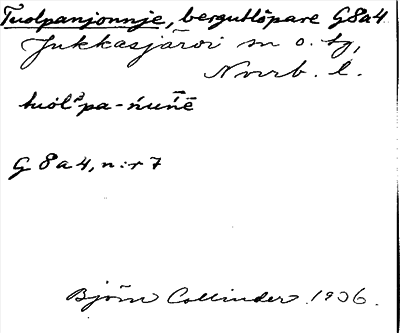 Tuolpanjonnje, bergutlöpare G8a4
Jukkasjärvi sn o. tg,
Norrb. l.
G 8 a 4, n:r 7
Björn Collinder 1936.